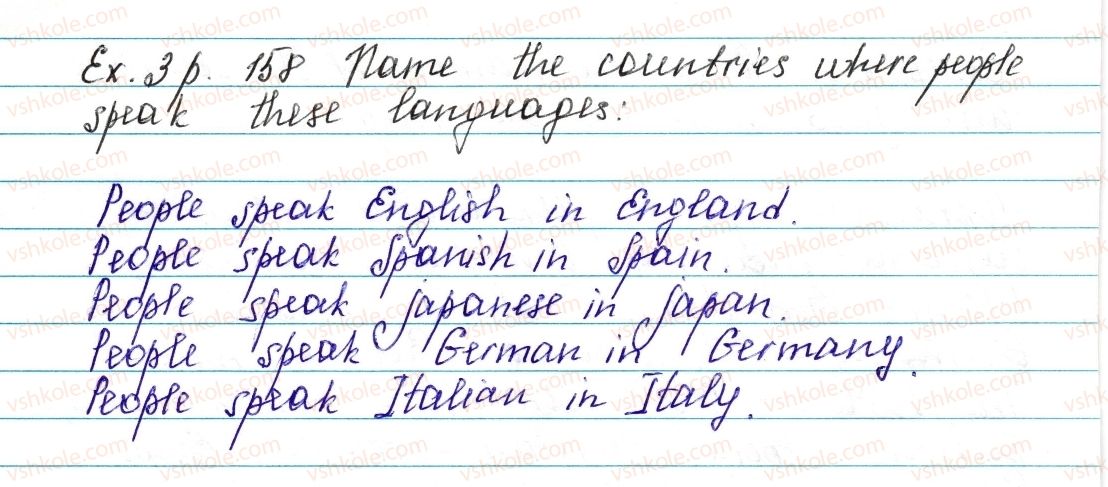 Ex. 3 p. 158 Name the countries where people
speak these languages:
People speak English in England.
People speak Spanish in Spain.
People speak Japanese in Japan.
People speak German in Germany.
People speak Italian in Italy.